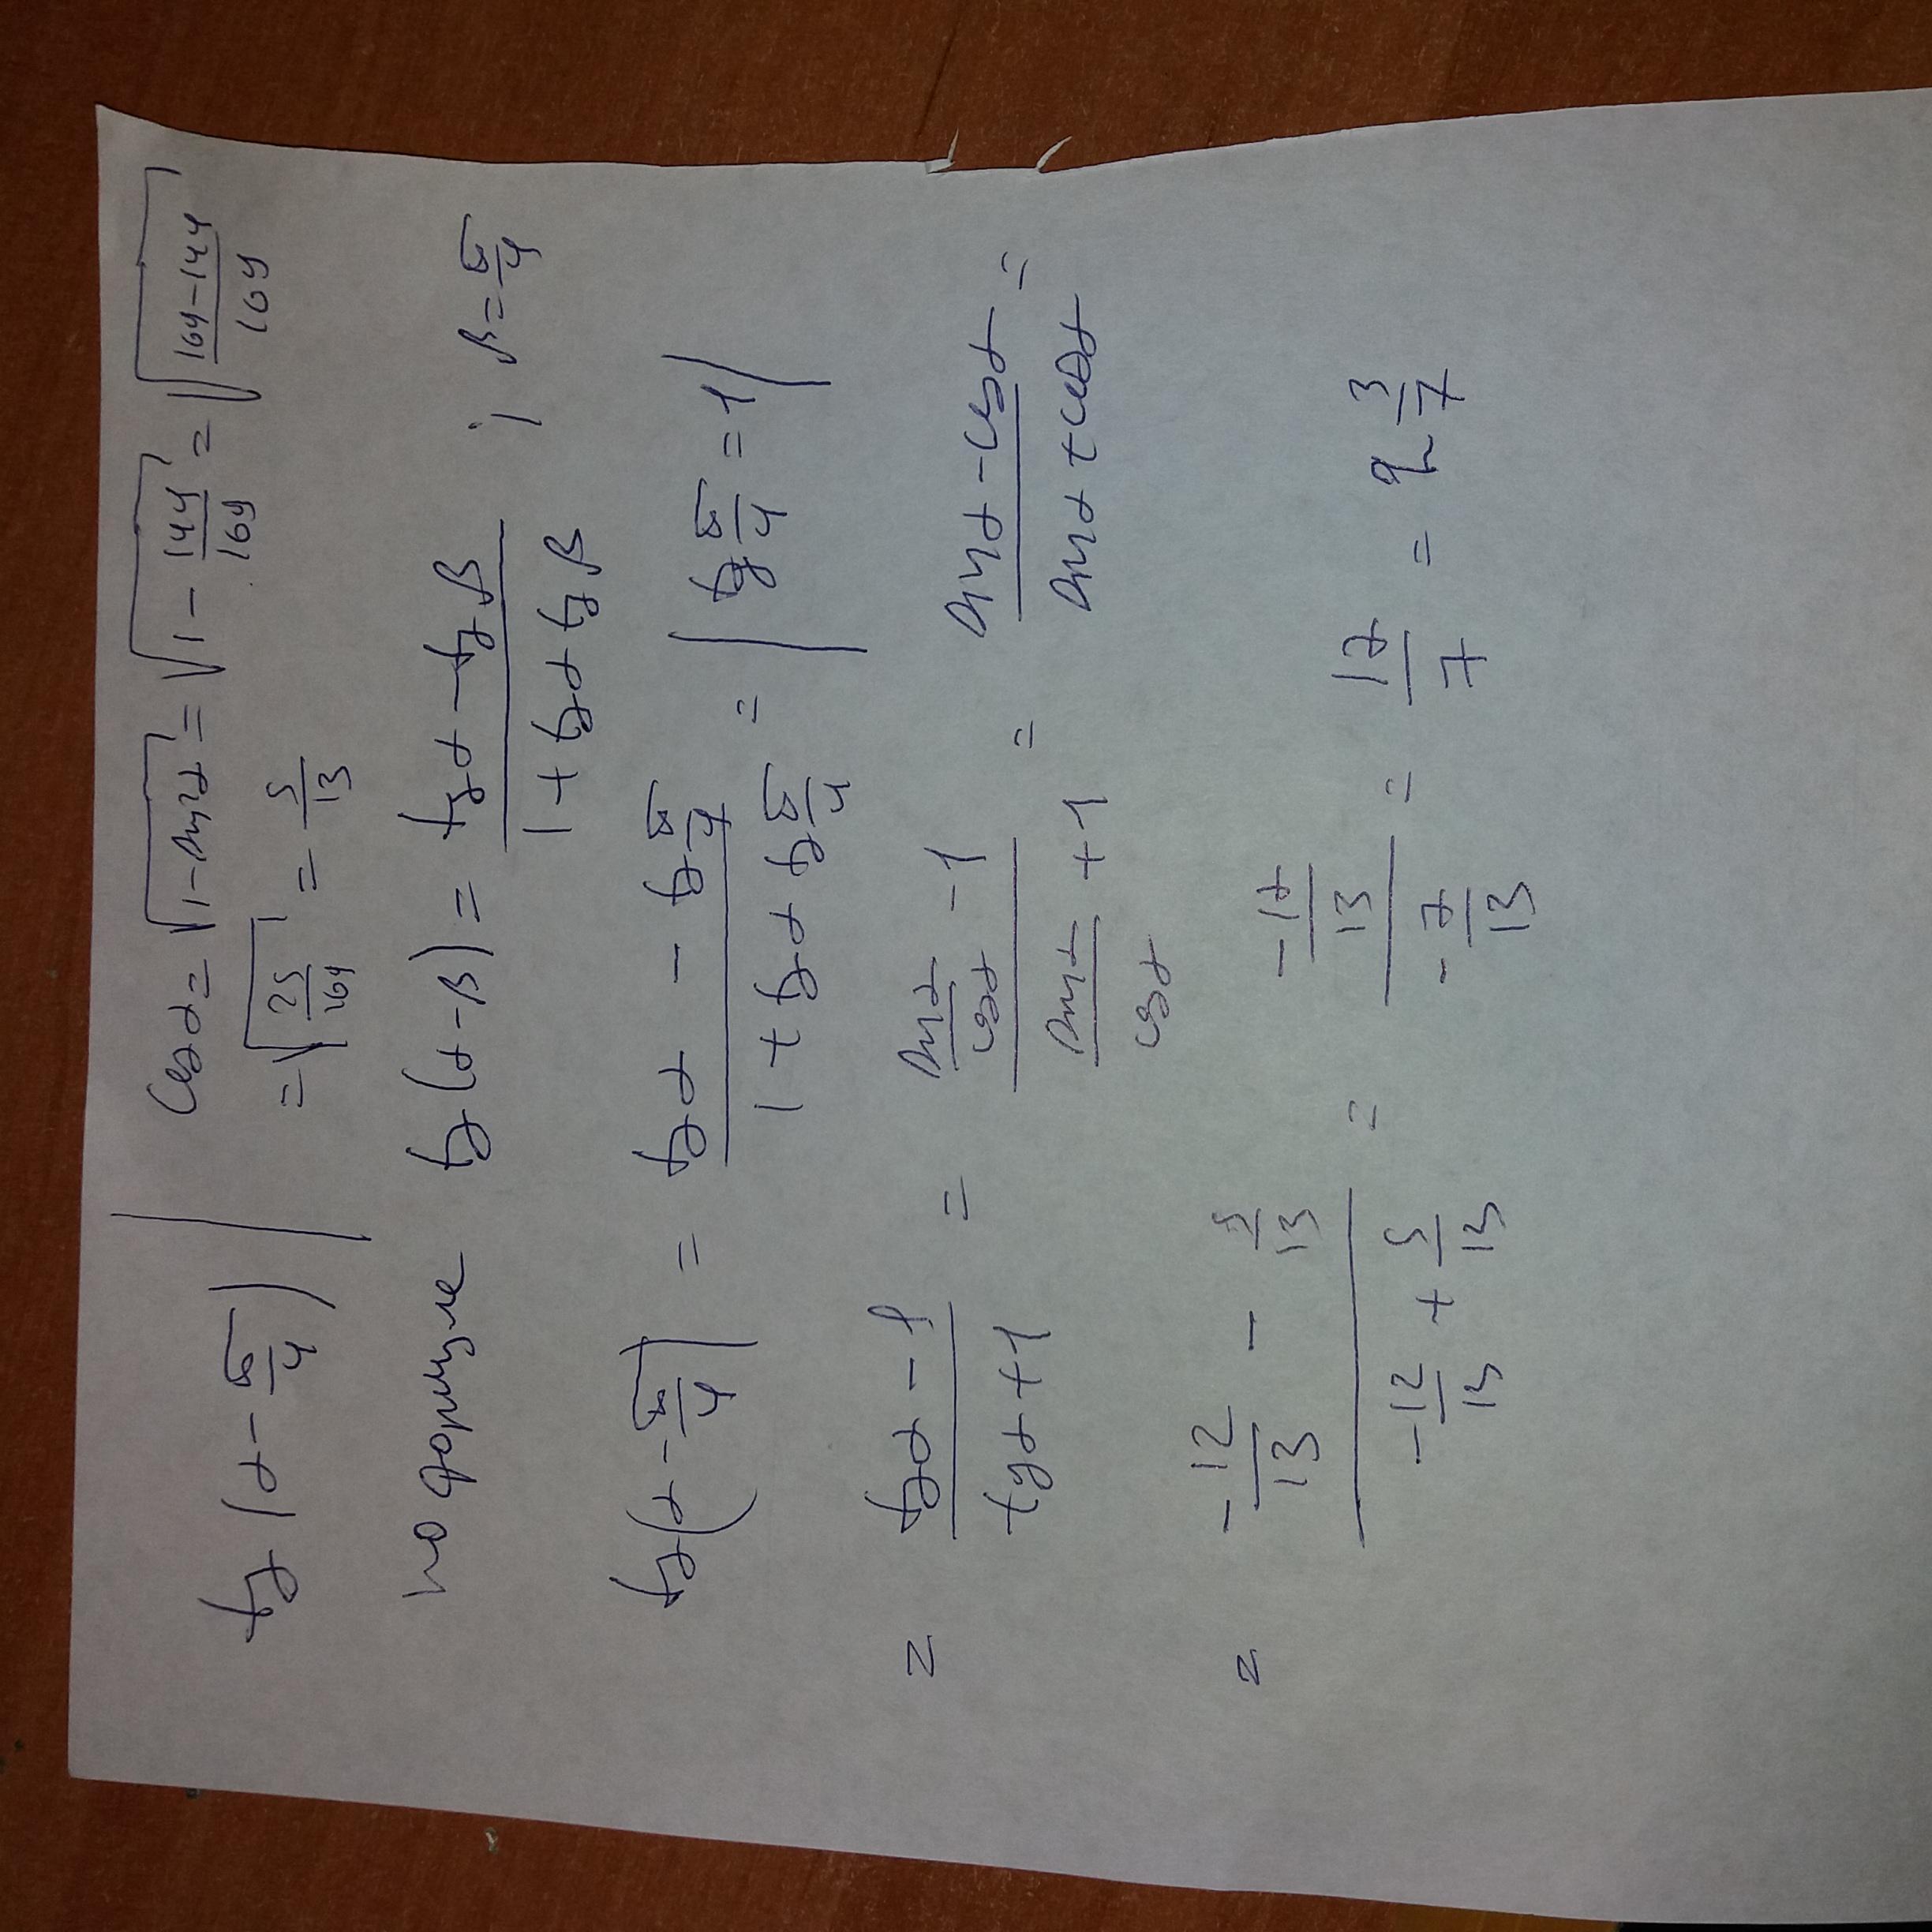 tg(α - π/4) | cos α = √(1 - sin²α) = √(1 - 144/169) = √((169-144)/169)
= √(25/169) = 5/13
по формуле tg(α-β) = (tgα - tgβ)/(1 + tgα tgβ) ; β = π/4
tg(α - π/4) = (tgα - tg π/4)/(1 + tgα tg π/4) = | tg π/4 = 1 |
= (tgα - 1)/(tgα + 1) = (sinα/cosα - 1)/(sinα/cosα + 1) = (sinα - cosα)/(sinα + cosα) =
= (-12/13 - 5/13)/(-12/13 + 5/13) = (-17/13)/(-7/13) = 17/7 = 2 3/7